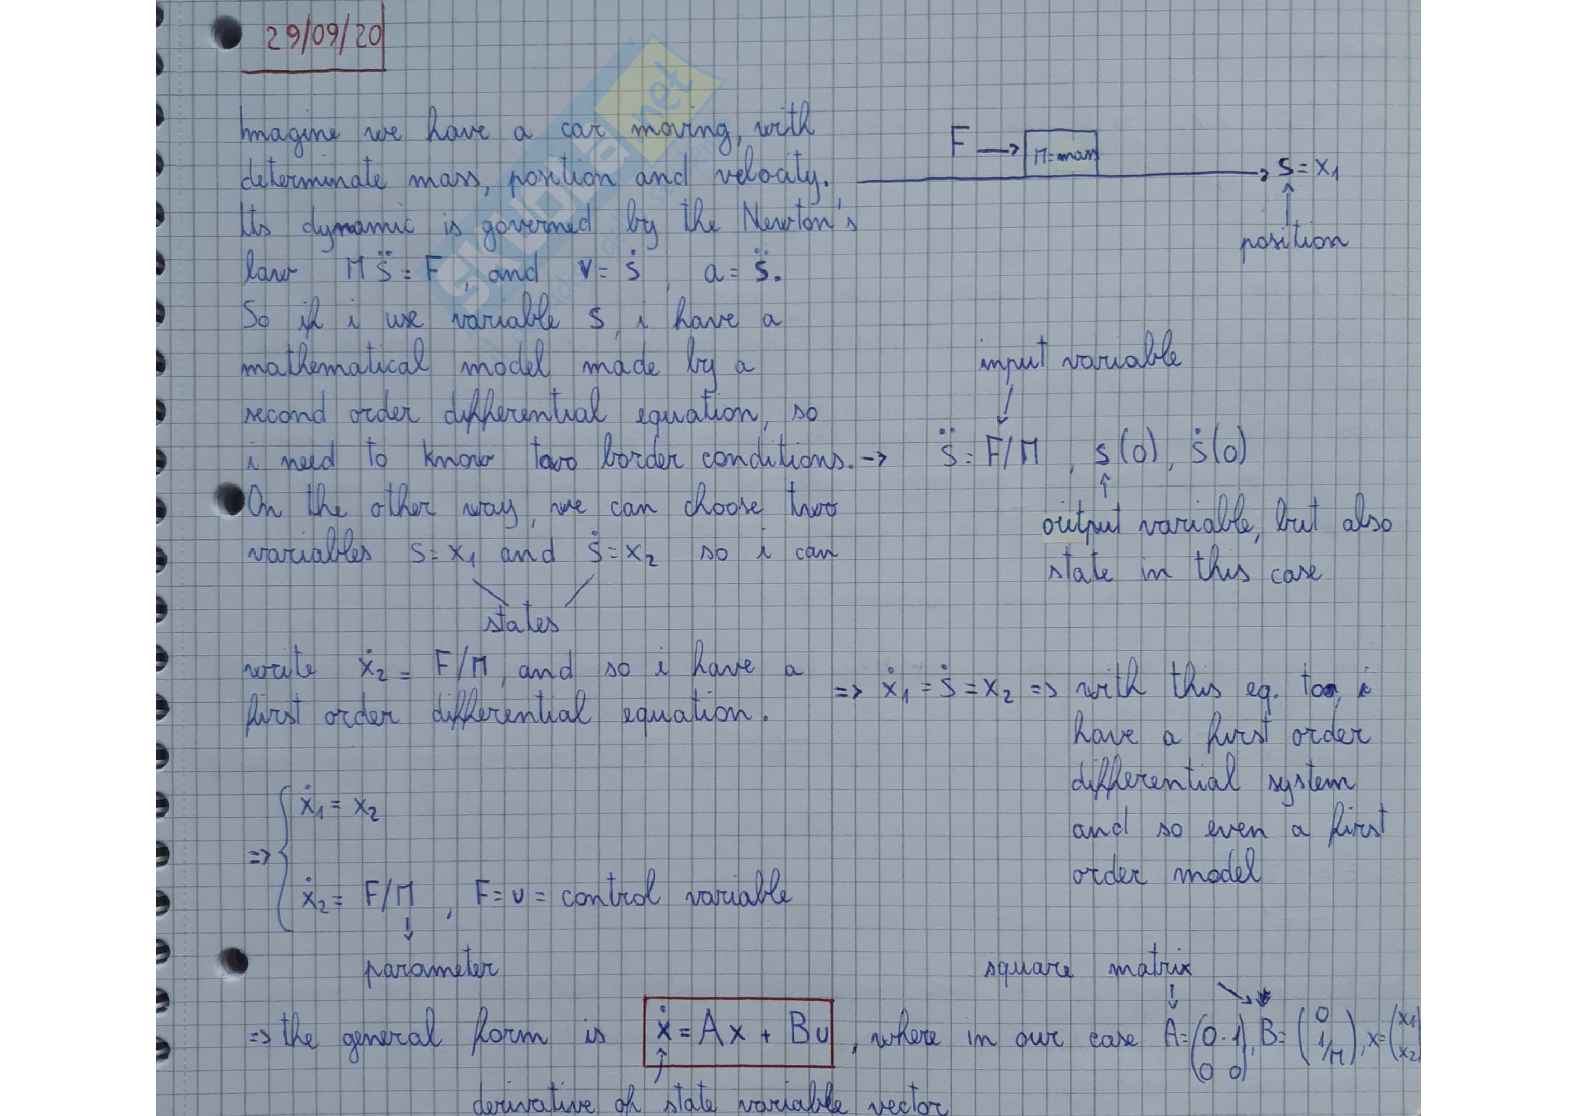 29/09/20
Imagine we have a car moving, with
determinate mass, position and velocity.
Its dynamic is governed by the Newton's
law M s̈ = F, and v = ṡ, a = s̈.
So if i use variable s, i have a
mathematical model made by a
second order differential equation, so
i need to know two border conditions. →
F → M=mass
s = x₁
↑
position
input variable
↓
s̈ = F/M , s(0), ṡ(0)
↑
output variable, but also
state in this case
On the other way, we can choose two
variables s = x₁ and ṡ = x₂ so i can
states
write ẋ₂ = F/M, and so i have a
first order differential equation.
=> ẋ₁ = ṡ = x₂ => with this eq. too, i
have a first order
differential system
and so even a first
order model
=> { ẋ₁ = x₂
ẋ₂ = F/M , F = u = control variable
↓
parameter
square matrix
=> the general form is ẋ = Ax + Bu , where in our case A = (0 1 0 0), B = (0 1/M), x = (x₁ x₂)
↑
derivative of state variable vector